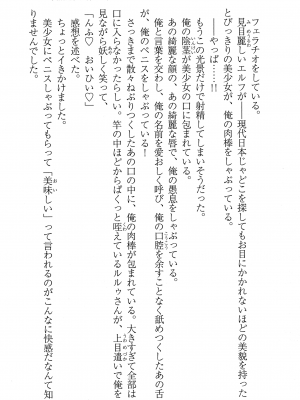 フェラチオをしている。
見目麗しいエルフが――現代日本じゃどこを探してもお目にかかれないほどの美貌を持った
とびっきりの美少女が、俺の肉棒をしゃぶっている。
――やっば……!!
もうこの光景だけで射精してしまいそうだった。
俺の陰茎が美少女の口に包まれている。
あの綺麗な顔の、あの綺麗な唇で、俺の愚息をしゃぶっている。
俺と言葉を交わし、俺の名前を愛おしく呼び、俺の口腔を余すことなく舐めつくしたあの舌
が、俺のペニスをしゃぶっている!
さっきまで散々ねぶりつくしたあの口の中に、俺の肉棒が包まれている。大きすぎて全部は
口に入らなかったらしい。竿の中ほどからぱくっと咥えているルルゥさんが、上目遣いで俺を
見ながら妖しく笑って、
「んふ♡ おいひい♡」
感想を述べた。
ちょっとイきかけました。
美少女にペニスしゃぶってもらって「美味しい」って言われるのがこんなに快感だなんて知
りませんでした。